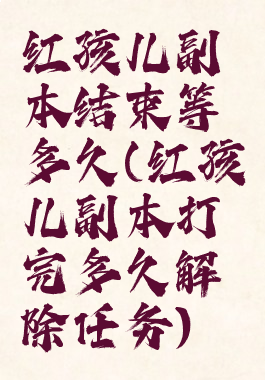 红孩儿副
本结束等
多久(红孩
儿副本打
完多久解
除任务)